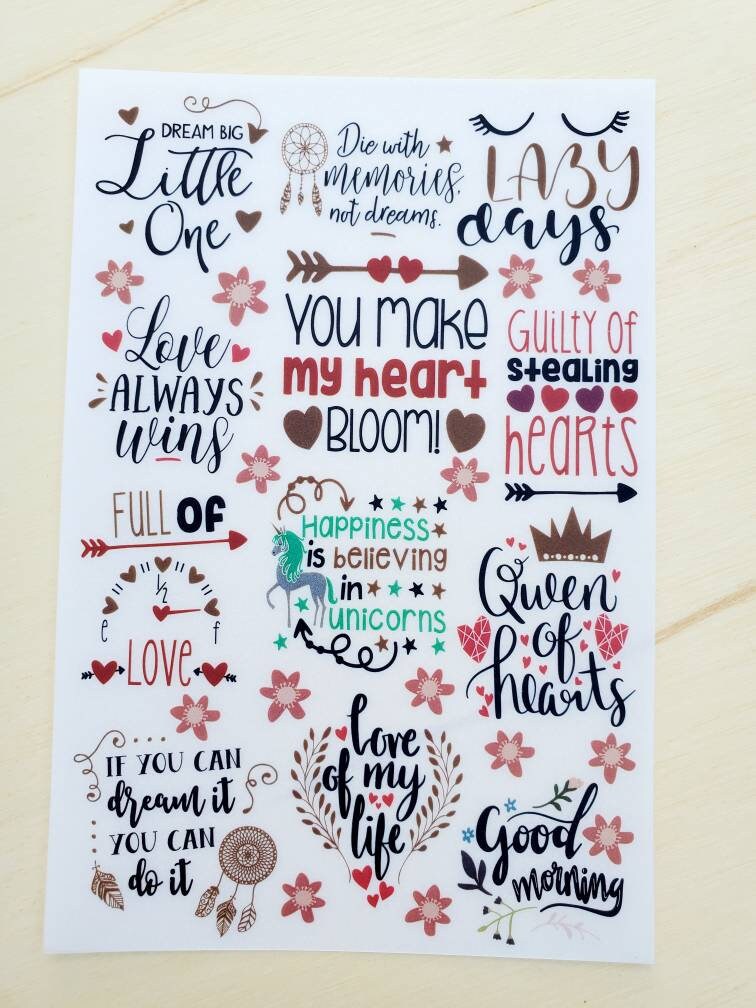 DREAM BIG
Little
One
Die with
memories,
not dreams.
LAZY
days
Love
ALWAYS
wins
YOU MAKE
my heart
BLOOM!
GUILTY OF
stealing
hearts
FULL OF
1/2
e f
LOVE
Happiness
is believing
in
unicorns
Queen
of
hearts
IF YOU CAN
dream it
YOU CAN
do it
love
of my
life
Good
morning